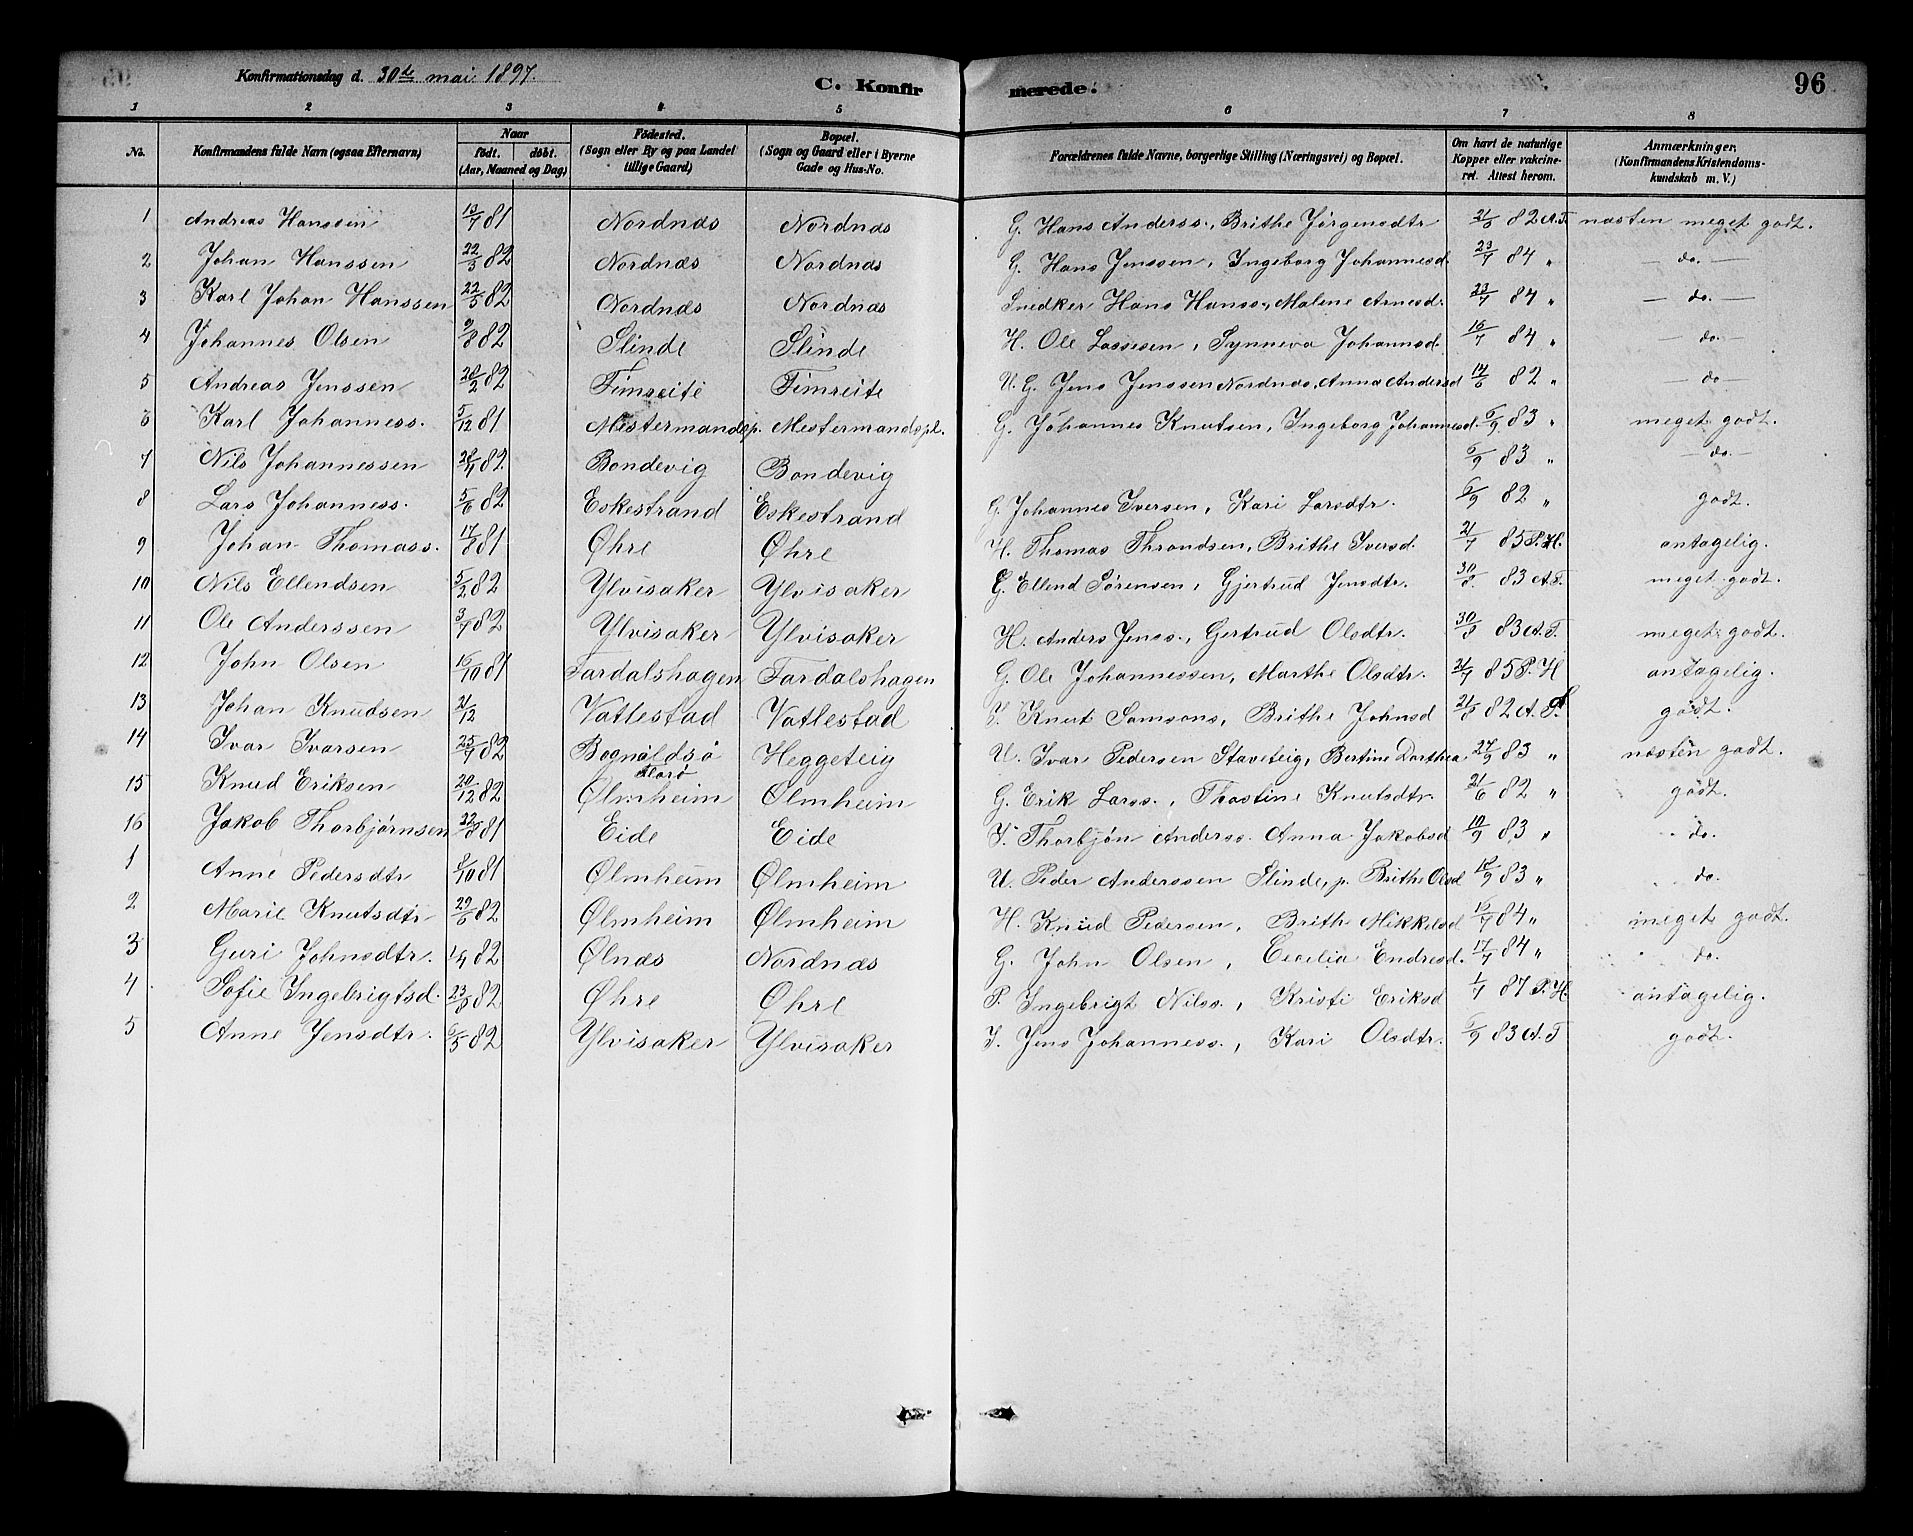 Konfirmationsdag d. 30de mai 1897.
C. Konfirmerede. 96
1 2 3 4 5 6 7 8
No. Konfirmandens fulde Navn (ogsaa Efternavn) Naar født. døbt. (Aar, Maaned og Dag) Fødested. (Sogn eller By og paa Landet tillige Gaard) Bopæl. (Sogn og Gaard eller i Byerne Gade og Hus-No. Forældrenes fulde Navne, borgerlige Stilling (Næringsvei) og Bopæl. Om havt de naturlige Kopper eller vakcineret. Attest herom. Anmærkninger. (Konfirmandens Kristendomskundskab m. V.)
1 Andreas Hanssen 13/7 81 Nordnæs Nordnæs G. Hans Anderss., Brithe Jørgensdtr 21/6 82 A.T. næsten meget godt.
2 Johan Hanssen 22/3 82 Nordnæs Nordnæs G. Hans Jenssen, Ingeborg Johannesd. 23/7 84 " — do. —
3 Karl Johan Hanssen 22/5 82 Nordnæs Nordnæs Snedker Hans Hanss., Malene Arnesd. 23/7 84 " — do. —
4 Johannes Olsen 9/8 82 Slinde Slinde H. Ole Lassesen, Synneva Johannsd. 16/7 84 " — do. —
5 Andreas Jenssen 20/2 82 Fimreite Fimreite U. G. Jens Jenssen Nordnæs, Anna Andersd 14/6 82 " — do —
6 Karl Johanness. 5/12 81 Mestermandsp. Mestermandspl. G. Johannes Knutsen, Ingeborg Johannesd. 6/9 83 " meget godt.
7 Nils Johannessen 28/4 82 Bondevig Bondevig 6/9 83 " — do. —
8 Lars Johanness. 5/6 82 Eskestrand Eskestrand G. Johannes Iversen, Kari Larsdtr. 6/9 82 " godt.
9 Johan Thomass. 17/8 81 Øhre Øhre H. Thomas Throndsen, Brithe Iversd. 21/7 85 P.H. antagelig.
10 Nils Ellendsen 5/2 82 Ylvisaker Ylvisaker G. Ellend Sørensen, Gjertrud Jensdtr. 30/8 83 A.T. meget godt.
11 Ole Anderssen 3/7 82 Ylvisaker Ylvisaker H. Anders Jenss., Gertrud Olsdtr. 30/8 83 A.T. meget godt.
12 John Olsen 16/10 81 Fardalshagen Fardalshagen G. Ole Johannessen, Marthe Olsdtr. 21/7 85 P.H antagelig.
13 Johan Knudsen 21/12 Vatlestad Vatlestad I. Knut Samsons, Brithe Johnsd 21/8 82 A.T. godt.
14 Ivar Ivarsen 25/7 82 Bognøldsø Florø Heggeteig U. Ivar Pedersen Staveteig, Bertine Dorthea 27/9 83 " næsten godt.
15 Knud Eriksen 20/12 82 Ølmheim Ølmheim G. Erik Larss., Thostine Knutsdtr. 21/6 82 " godt.
16 Jakob Thorbjørnsen 22/8 81 Eide Eide I. Thorbjøn Anderss. Anna Jakobsd 10/9 83 " do.
1 Anne Pedersdtr 8/10 81 Ølmheim Ølmheim U. Peder Anderssen Slinde, p. Brithe Olsd 18/9 83 " do.
2 Marie Knutsdtr 29/6 82 Ølmheim Ølmheim H. Knud Pedersen, Brithe Mikkelsd 16/7 84 " meget godt.
3 Guri Johnsdtr. 1/4 82 Ølnæs Nordnæs G. John Olsen, Cecilia Endresd. 17/7 84 " do.
4 Sofie Ingebrigtsd. 23/8 82 Øhre Øhre P. Ingebrigt Nilss., Kristi Eriksd 1/7 87 P.H. antagelig.
5 Anne Jensdtr. 6/5 82 Ylvisaker Ylvisaker I. Jens Johanness., Kari Olsdtr. 6/9 83 A.T godt.